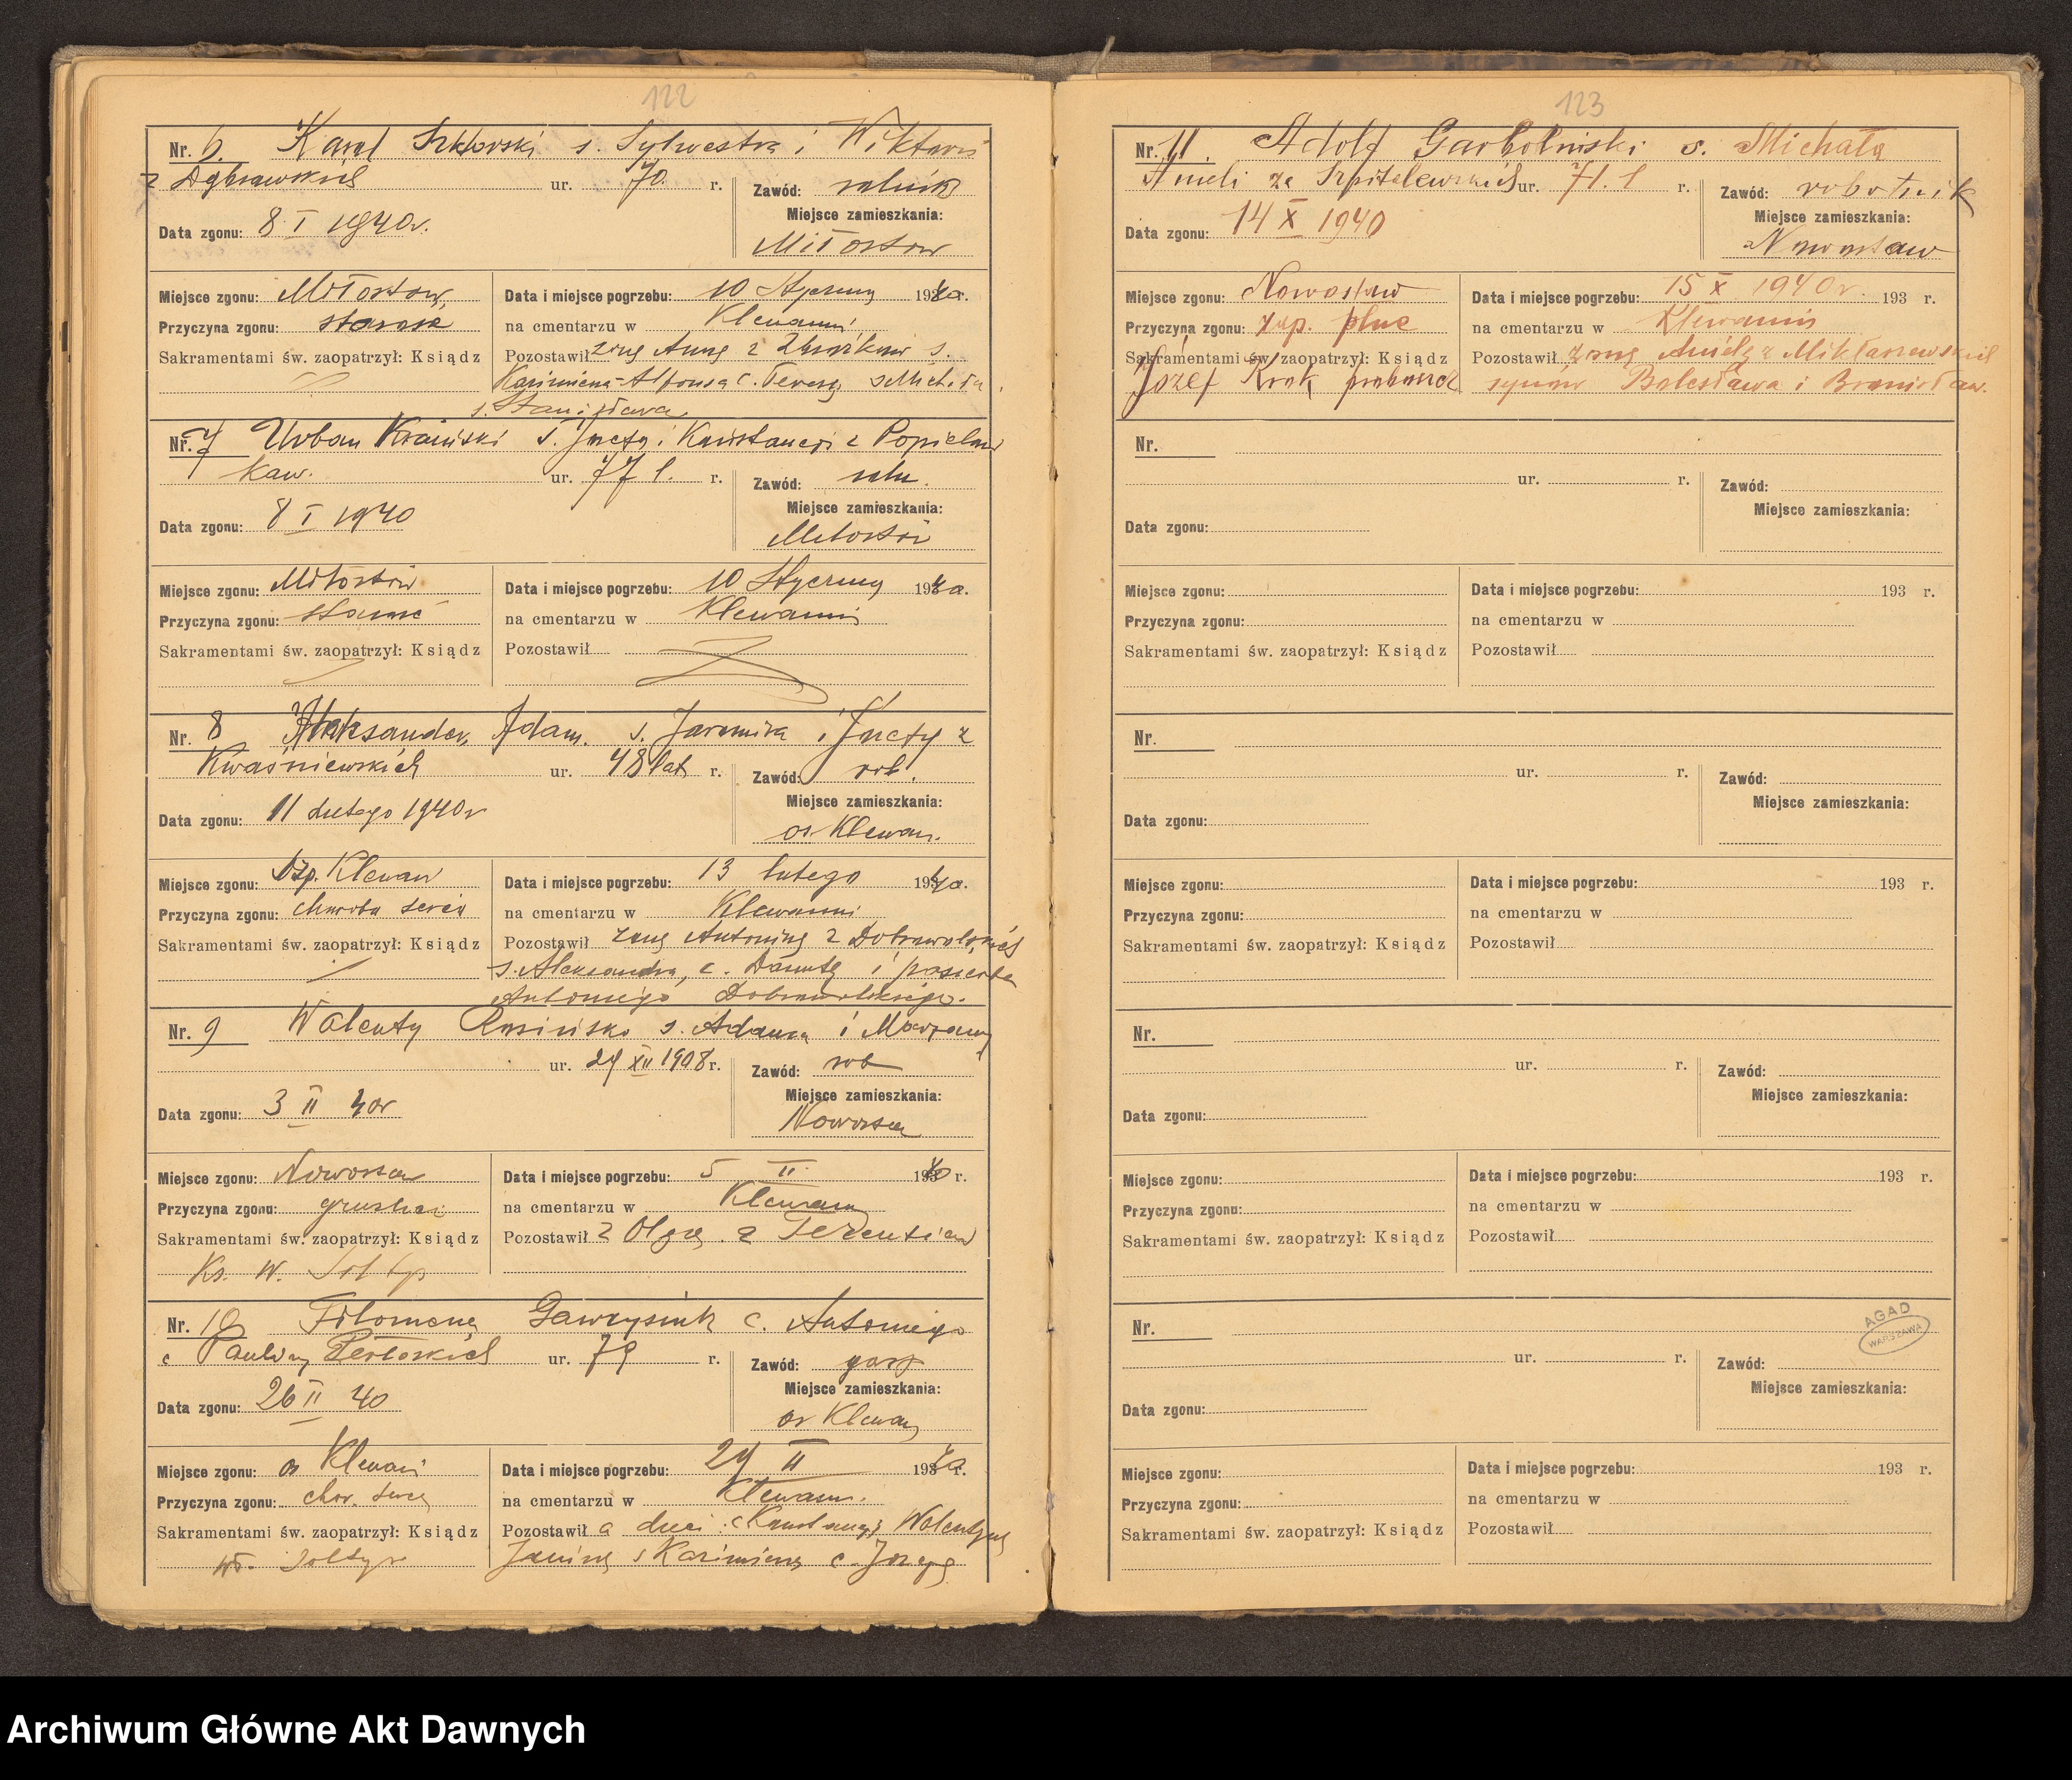 122
Nr. 6. Karol Szklarski s. Sylwestra i Wiktorii
z Dąbrowskich ur. 70. r. Zawód: rolnik
Miejsce zamieszkania:
Data zgonu: 8 I 1940r.
Miłostow
Miejsce zgonu: Miłostow Data i miejsce pogrzebu: 10 Stycznia 1940r.
Przyczyna zgonu: starość na cmentarzu w Klewaniu
Sakramentami św. zaopatrzył: Ksiądz Pozostawił żonę Annę z s.
Kazimierza-Alfonsa c. Teresę s. Michała
s. Stanisława
Nr. 7 Urban s. i Konstancji z Popielów
kaw. ur. 77 l. r. Zawód: roln.
Miejsce zamieszkania:
Data zgonu: 8 I 1940
Miłostów
Miejsce zgonu: Miłostów Data i miejsce pogrzebu: 10 Stycznia 1940.
Przyczyna zgonu: starość na cmentarzu w Klewaniu
Sakramentami św. zaopatrzył: Ksiądz Pozostawił
Nr. 8 Aleksander Adam. s. i z
Kwaśniewskich ur. 48 lat r. Zawód: rob.
Miejsce zamieszkania:
Data zgonu: 11 lutego 1940r
os. Klewan.
Miejsce zgonu: Szp. Klewan Data i miejsce pogrzebu: 13 lutego 1940.
Przyczyna zgonu: choroba serca na cmentarzu w Klewaniu
Sakramentami św. zaopatrzył: Ksiądz Pozostawił żonę Antoninę z Dobrowolskich
s. Aleksandra, c. Danutę i pasierba
Antoniego Dobrowolskiego.
Nr. 9 Walenty s. Adama i Marjanny
ur. 24 XII 1908 r. Zawód: rob
Miejsce zamieszkania:
Data zgonu: 3 II 40r
Miejsce zgonu: Data i miejsce pogrzebu: 5 II 1940 r.
Przyczyna zgonu: na cmentarzu w Klewaniu
Sakramentami św. zaopatrzył: Ksiądz Pozostawił ż Olgę z
Ks. W. Sołtys
Nr. 10 Filomena c. Antoniego
Pauliny ur. 79 r. Zawód: gosp
Miejsce zamieszkania:
Data zgonu: 26 II 40
os Klewań
Miejsce zgonu: os Klewań Data i miejsce pogrzebu: 29 II 1940 r.
Przyczyna zgonu: chor. serca na cmentarzu w Klewaniu.
Sakramentami św. zaopatrzył: Ksiądz Pozostawił a dzieci c Konstancję Walentynę
Wł. Sołtys Janinę s Kazimierza c. Józefę
123
Nr. 11. Adolf Garbolniski s. Michała
Anieli ze Szpitalewskich ur. 71. l r. Zawód: robotnik
Miejsce zamieszkania:
Data zgonu: 14 X 1940
Nowostaw
Miejsce zgonu: Nowostaw Data i miejsce pogrzebu: 15 X 1940r. 193 r.
Przyczyna zgonu: zap. płuc na cmentarzu w Klewaniu
Sakramentami św. zaopatrzył: Ksiądz Pozostawił żonę Anielę z Mikłaszewskich
Józef Krok proboszcz synów Bolesława i Bronisław.
Nr.
ur. r. Zawód:
Miejsce zamieszkania:
Data zgonu:
Miejsce zgonu: Data i miejsce pogrzebu: 193 r.
Przyczyna zgonu: na cmentarzu w
Sakramentami św. zaopatrzył: Ksiądz Pozostawił
Nr.
ur. r. Zawód:
Miejsce zamieszkania:
Data zgonu:
Miejsce zgonu: Data i miejsce pogrzebu: 193 r.
Przyczyna zgonu: na cmentarzu w
Sakramentami św. zaopatrzył: Ksiądz Pozostawił
Nr.
ur. r. Zawód:
Miejsce zamieszkania:
Data zgonu:
Miejsce zgonu: Data i miejsce pogrzebu: 193 r.
Przyczyna zgonu: na cmentarzu w
Sakramentami św. zaopatrzył: Ksiądz Pozostawił
AGAD
WARSZAWA
Nr.
ur. r. Zawód:
Miejsce zamieszkania:
Data zgonu:
Miejsce zgonu: Data i miejsce pogrzebu: 193 r.
Przyczyna zgonu: na cmentarzu w
Sakramentami św. zaopatrzył: Ksiądz Pozostawił
Archiwum Główne Akt Dawnych